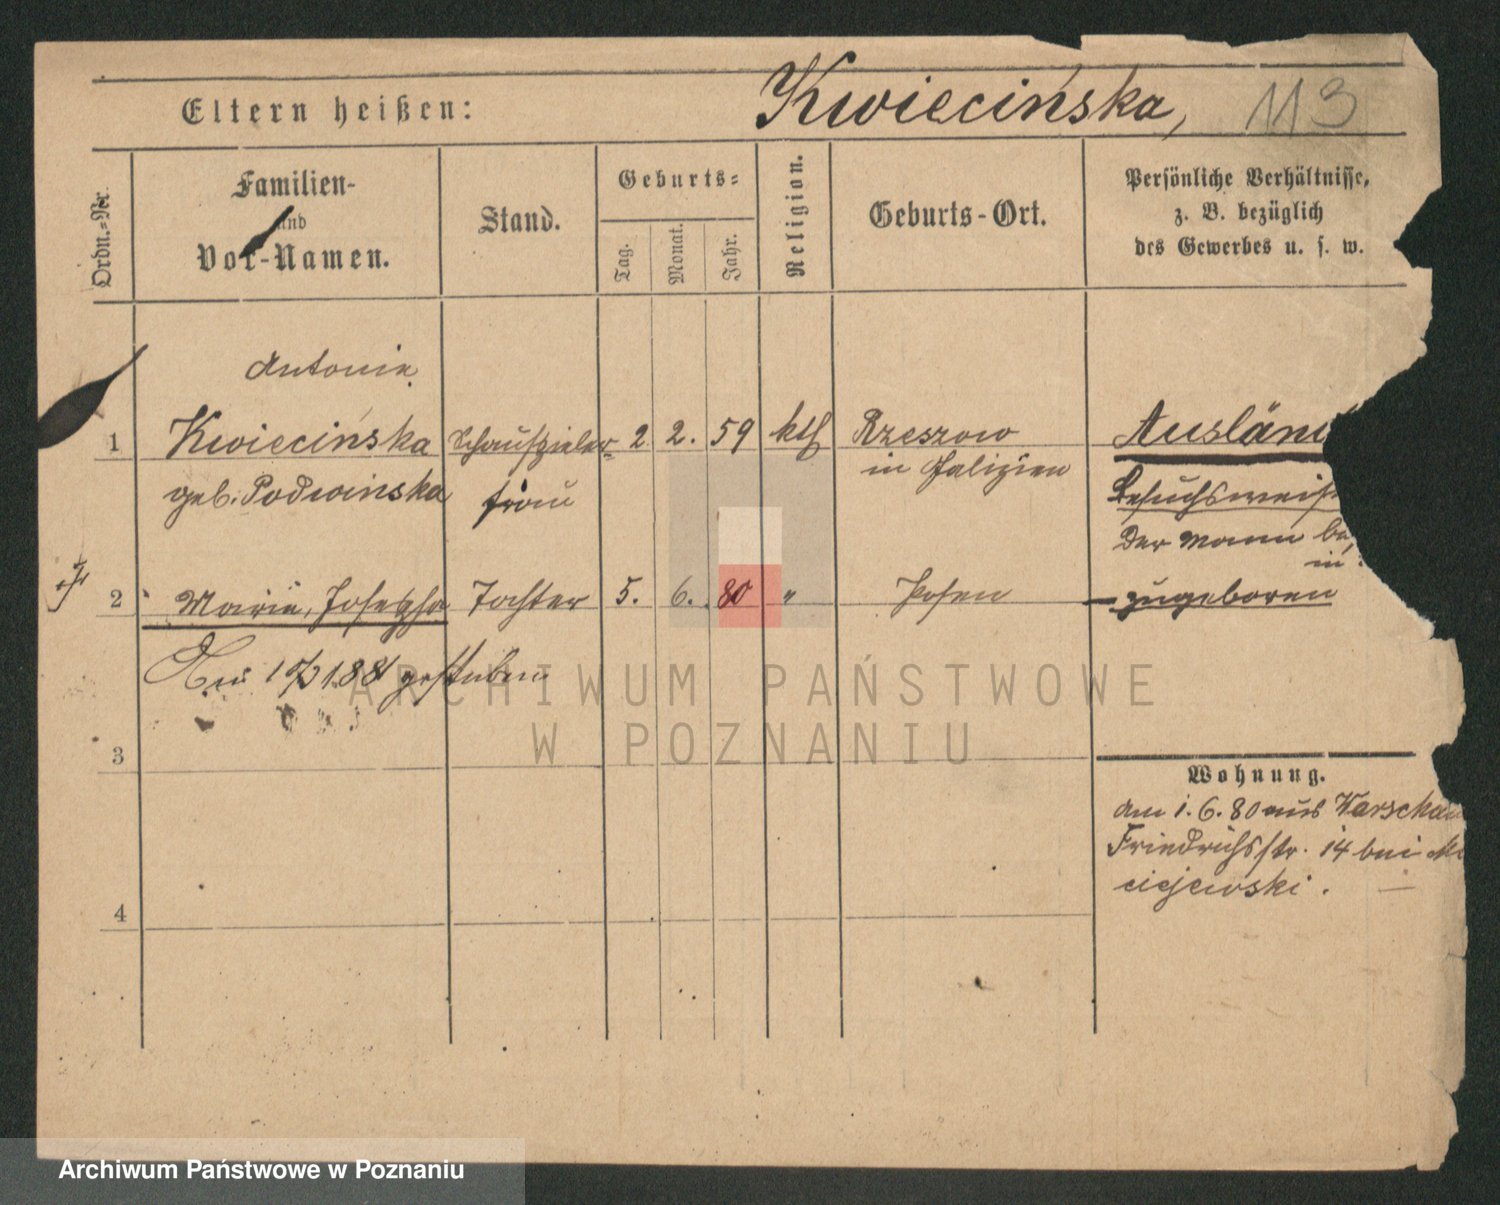 Eltern heißen:
Kwiecińska, 113
Ordn.-Nr.
Familien-
und
Vor-Namen.
Stand.
Geburts-
Tag.
Monat.
Jahr.
Religion.
Geburts-Ort.
Persönliche Verhältnisse,
z. B. bezüglich
des Gewerbes u. s. w.
Antonie
1 Kwiecińska Schauspieler- 2. 2. 59 kth Rzeszow Auslän
geb. Podwinska frau in Galizien
Besuchsweis
Der Mann
in
2 Maria, Josepha Tochter 5. 6. 80 " Posen zugeboren
gestorben
3
Wohnung.
am 1. 6. 80 aus Warschau
Friedrichsstr. 14 bei M
ciejewski.
4
ARCHIWUM PAŃSTWOWE
W POZNANIU
Archiwum Państwowe w Poznaniu